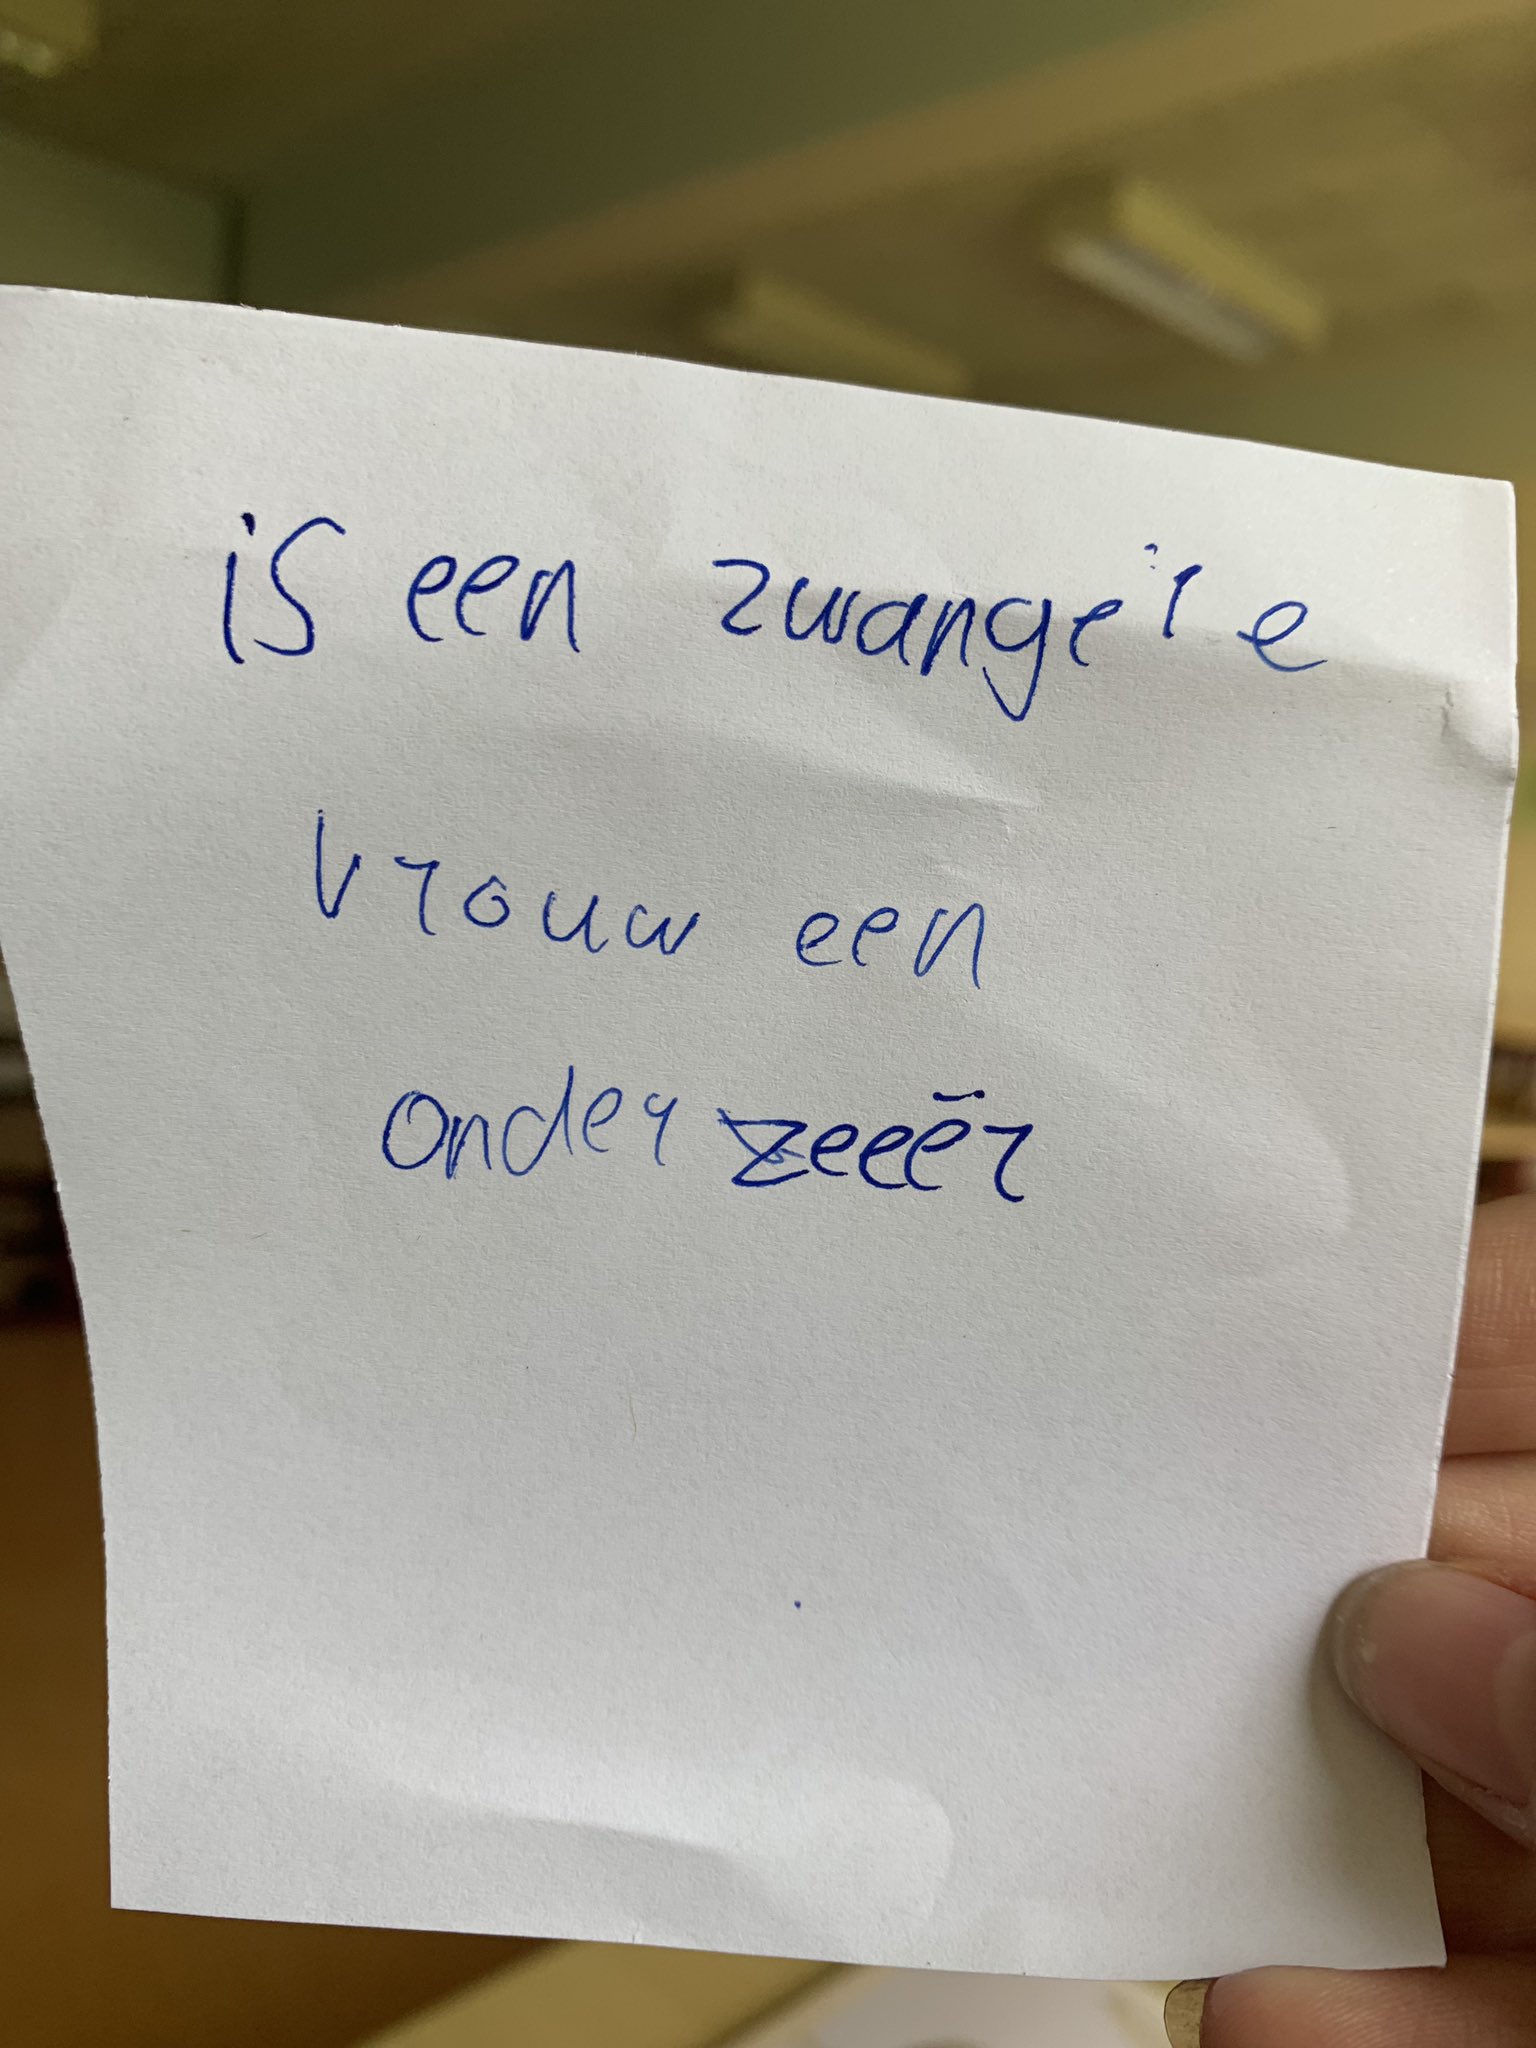 is een zwangere
vrouw een
onder zeeër